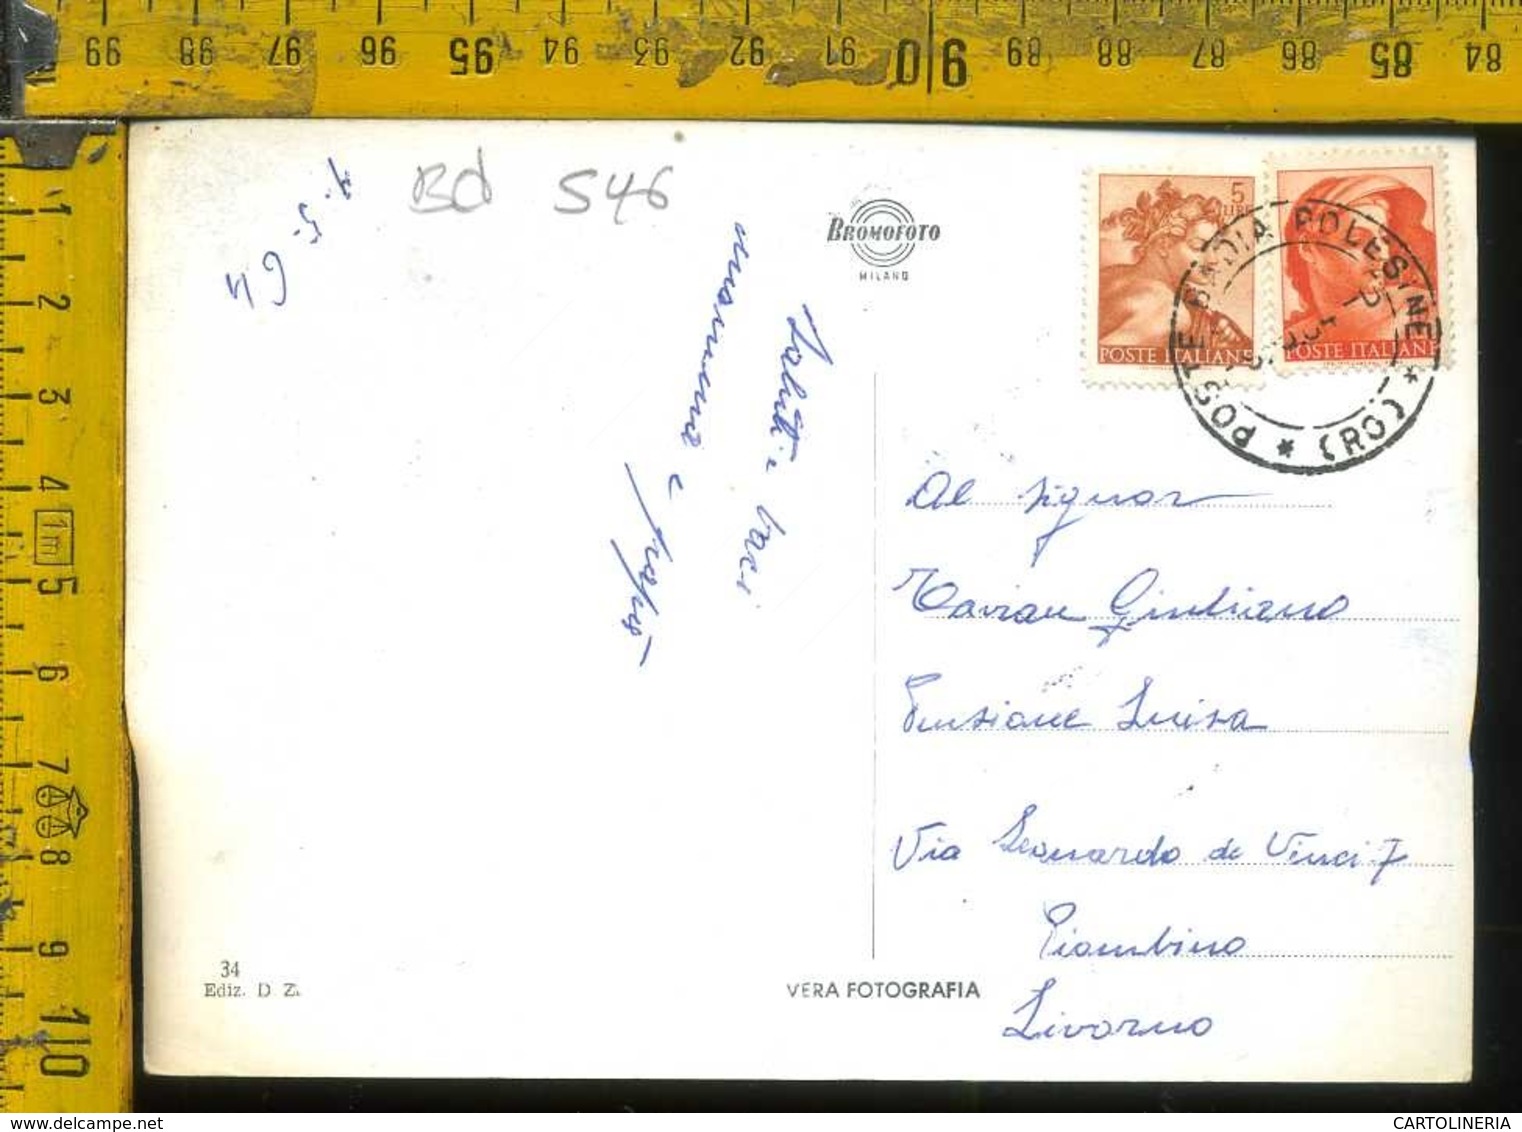 99 98 97 96 95 94 93 92 91 90 89 88 87 86 85 84
1
2
3
4
1m
5
6
7
8
9
10
Bd 546
4.5.64
BROMOFOTO
MILANO
5
LIRE
POSTE ITALIANE
POSTE ITALIANE
POSTE BADIA POLESINE * (RO) *
Saluti e baci
mamma e
Al Signor
Tavian Giuliano
Pensione Luisa
Via Leonardo da Vinci 7
Piombino
Livorno
34
Ediz. D. Z.
VERA FOTOGRAFIA
CARTOLINERIA